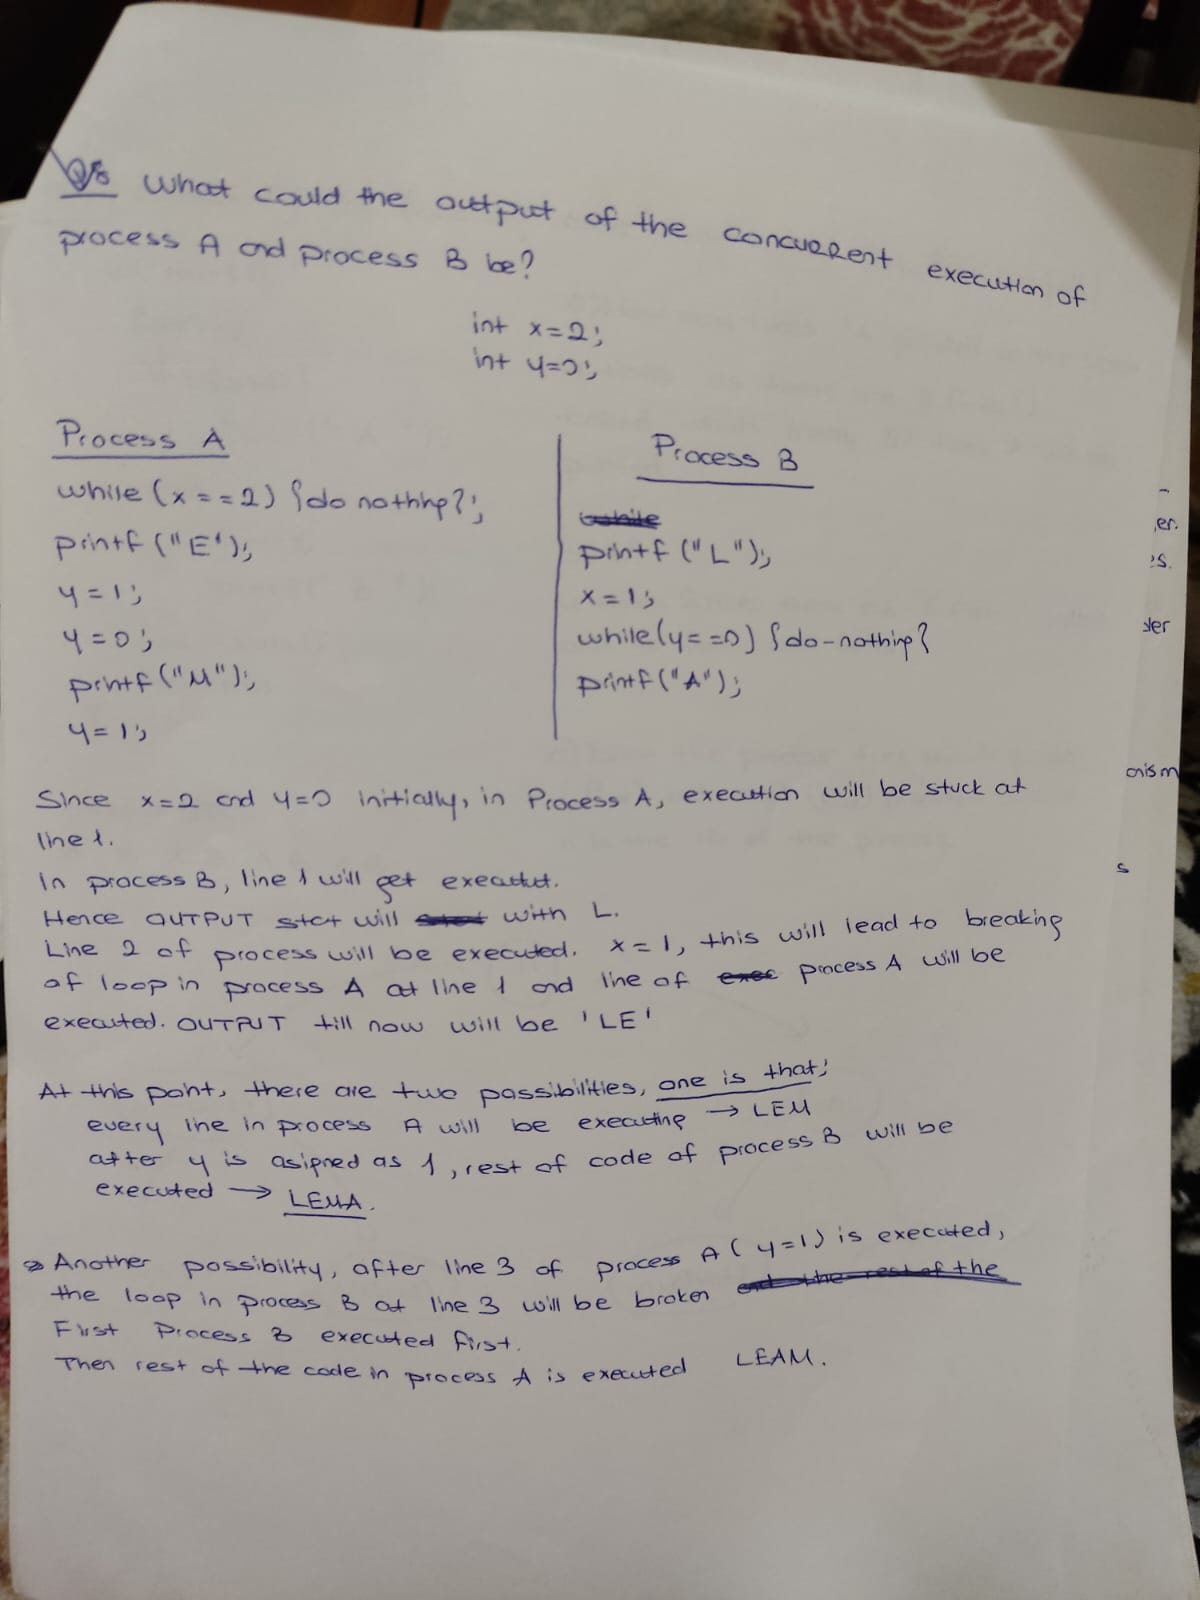 What could the output of the concurrent execution of
process A and process B be?
int x=2;
int y=0;
Process A
while (x==2) {do nothing};
printf ("E");
y=1;
y=0;
printf ("M");
y=1;
Process B
while
printf ("L");
x=1;
while(y==0) {do-nothing}
printf("A");
Since x=2 and y=0 initially, in Process A, execution will be stuck at
line 1.
In process B, line 1 will get executut.
Hence OUTPUT stat will with L.
Line 2 of process will be executed. x=1, this will lead to breaking
of loop in process A at line 1 and line of exec process A will be
executed. OUTPUT till now will be 'LE'
At this point, there are two possibilities, one is that;
every line in process A will be executing → LEM
after y is asigned as 1, rest of code of process B will be
executed → LEMA.
Another possibility, after line 3 of process A (y=1) is executed,
the loop in process B at line 3 will be broken and the rest of the
First Process B executed first.
Then rest of the code in process A is executed LEAM.
er.
es.
der
anism
s